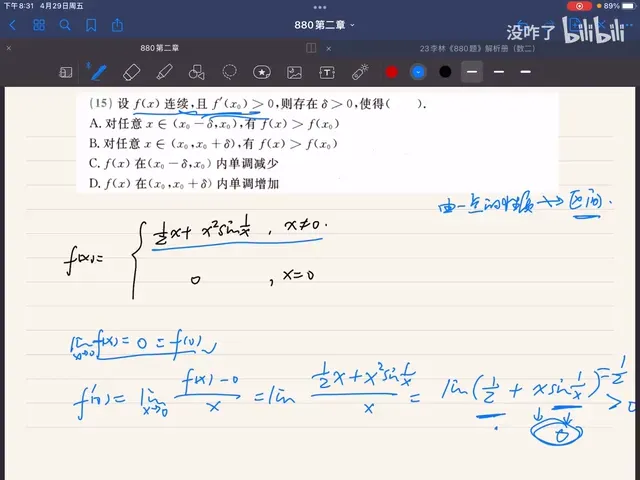 下午8:31 4月29日周五
89%
880第二章
没咋了 bilibili
880第二章
23李林《880题》解析册(数二)
(15) 设 f(x) 连续,且 f′(x₀)>0,则存在 δ>0,使得( ).
A. 对任意 x∈(x₀-δ,x₀),有 f(x)>f(x₀)
B. 对任意 x∈(x₀,x₀+δ),有 f(x)>f(x₀)
C. f(x) 在(x₀-δ,x₀) 内单调减少
D. f(x) 在(x₀,x₀+δ) 内单调增加
由一点的性质 → 区间.
f(x)= { ½x + x²sin 1/x , x≠0.
0 , x=0
lim x→0 f(x) = 0 = f(0)
f′(0) = lim x→0 (f(x)-0)/x = lim (½x + x²sin 1/x)/x = lim(½ + x sin 1/x) = ½ > 0
0